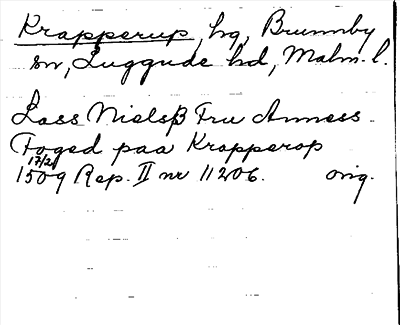 Krapperup, hg, Brunnby
sn, Luggude hd, Malm. l.
Lass Nielsß Fru Anness
Foged paa Krapperop
17/2
1509 Rep. II nr 11206. orig.